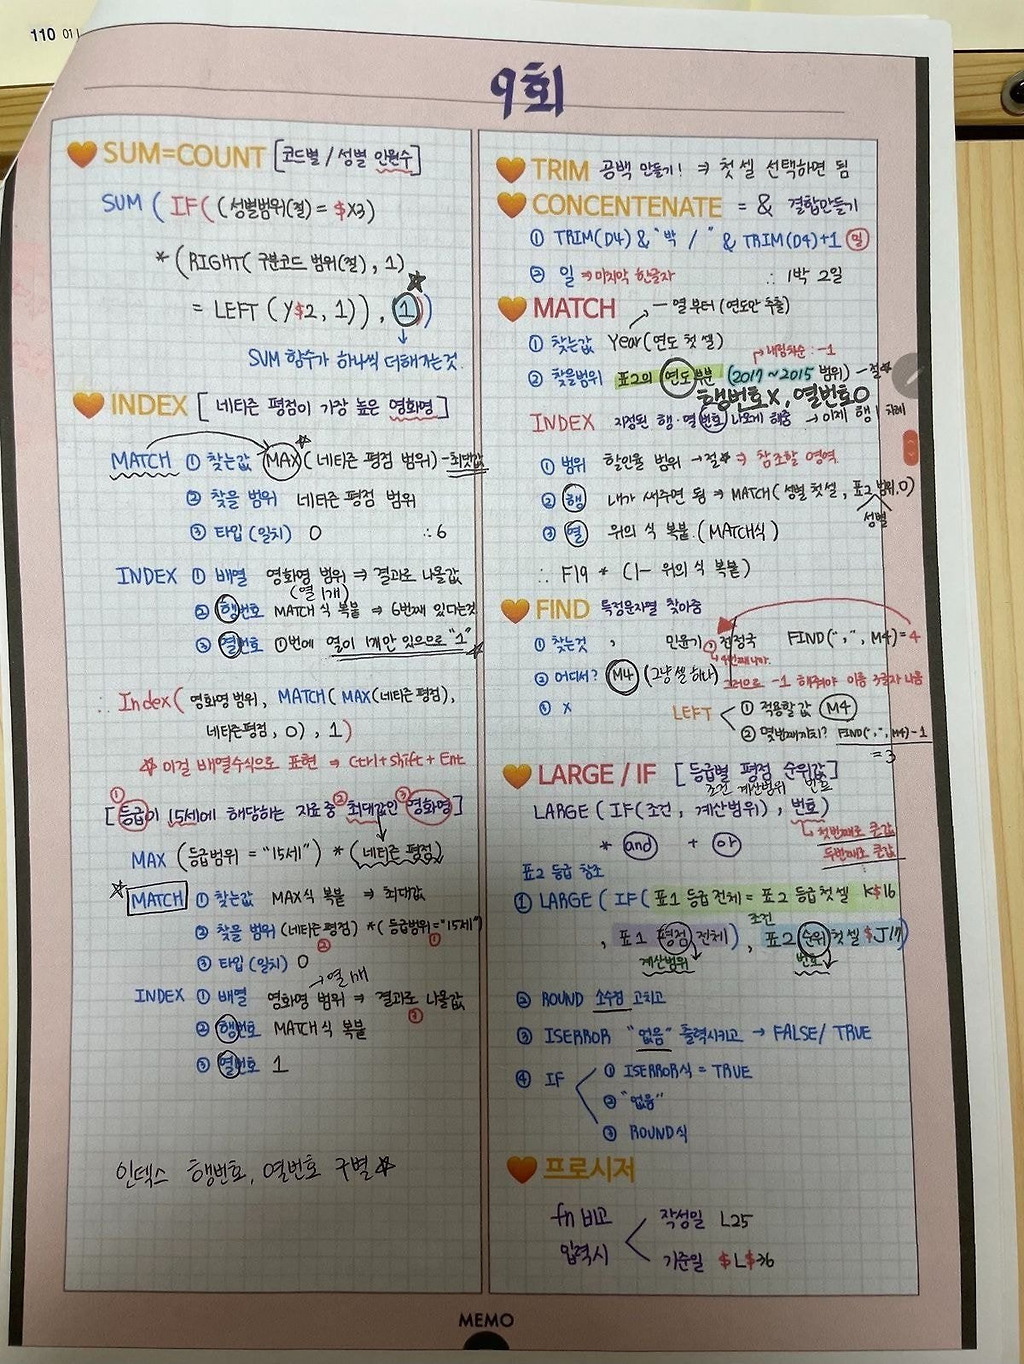 110 01
9회
SUM=COUNT [코드별 / 성별 인원수]
SUM ( IF( (성별범위(절) = $X3)
* (RIGHT( 구분코드 범위(절), 1)
= LEFT ( Y$2, 1)) , 1))
SUM 함수가 하나씩 더해지는것.
INDEX [ 네티즌 평점이 가장 높은 영화명 ]
MATCH ① 찾는값 MAX( 네티즌 평점 범위) - 최댓값
② 찾을 범위 네티즌 평점 범위
③ 타입 (일치) 0 ∴ 6
INDEX ① 배열 영화명 범위 ⇒ 결과로 나올값
(열 1개)
② 행번호 MATCH 식 복붙 ⇒ 6번째 있다는것
③ 열번호 ①번에 열이 1개만 있으므로 "1"
∴ Index( 영화명 범위, MATCH( MAX(네티즌 평점),
네티즌 평점, 0) , 1)
☆ 이걸 배열수식으로 표현 ⇒ Ctrl + Shift + Ent
① ② ③
[ 등급이 15세에 해당하는 자료 중 최대값인 영화명 ]
MAX (등급범위 = "15세") * (네티즌 평점)
☆ MATCH ① 찾는값 MAX식 복붙 ⇒ 최대값
② 찾을 범위 (네티즌 평점) * ( 등급범위 = "15세")
② ①
③ 타입 (일치) 0
→ 열 1개
INDEX ① 배열 영화명 범위 ⇒ 결과로 나올값
③
② 행번호 MATCH 식 복붙
③ 열번호 1
인덱스 행번호, 열번호 구별 ☆
TRIM 공백 만들기! ⇒ 첫 셀 선택하면 됨
CONCENTENATE = & 결합만들기
① TRIM(D4) & "박 / " & TRIM(D4)+1 일
② 일 ⇒ 마지막 한글자 ∴ 1박 2일
MATCH — 열 부터 (연도만 추출)
① 찾는값 Year (연도 첫 셀)
내림차순 : -1
② 찾을범위 표2의 연도 부분 (2017 ~ 2015 범위) — 절☆
행번호 X, 열번호 O
INDEX 지정된 행·열 번호 나오게 해줌 → 이제 행 1
① 범위 할인율 범위 → 절☆ ⇒ 참조할 영역
② 행 내가 써주면 됨 ⇒ MATCH ( 성별 첫셀, 표2 범위, 0)
성별
③ 열 위의 식 복붙. ( MATCH식 )
∴ F19 * (1- 위의 식 복붙)
FIND 특정문자열 찾아줌
① 찾는것 , 민윤기, 전정국 FIND(",", M4) = 4
4번째니까.
② 어디서? M4 (그냥 셀 하나) 그러므로 -1 해줘야 이름 3글자 나옴
③ X
LEFT ① 적용할 값 M4
② 몇번째까지? FIND(",", M4) - 1
= 3
LARGE / IF [ 등급별 평점 순위값 ]
조건 계산범위 번호
LARGE ( IF( 조건 , 계산범위) , 번호)
첫번째로 큰값
* and + or 두번째로 큰값
표2 등급 참조
① LARGE ( IF ( 표1 등급전체 = 표2 등급 첫셀 K$16
조건
, 표1 평점 전체) , 표2 순위 첫 셀 $J17)
계산범위 번호
② ROUND 소수점 고치고
③ ISERROR "없음" 출력시키고 → FALSE / TRUE
④ IF ① ISERROR식 = TRUE
② "없음"
③ ROUND 식
프로시저
fn 비고 작성일 L25
입력시 기준일 $L$36
MEMO